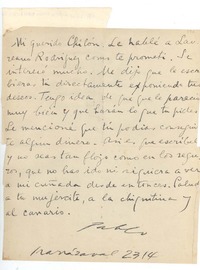 Mi querido Chilón. Le hablé a Lau-
reano Rodríguez como te prometí. Se
interesó mucho. Me dijo que le escri-
bieras tú directamente exponiendo tus
deseos. Tengo idea de que le pareció
muy bien y que harán lo que tu pides.
Le mencioné que tú podías conseguir
te algún dinero. Así es, que escríbele
y no seas tan flojo como en los segu-
ros, que no has ido ni siquiera a ver
a mi cuñada desde entonces. Salud
a tu mujercita, a la chiquitina y
al canario.
Pablo
Irarrázaval 2314